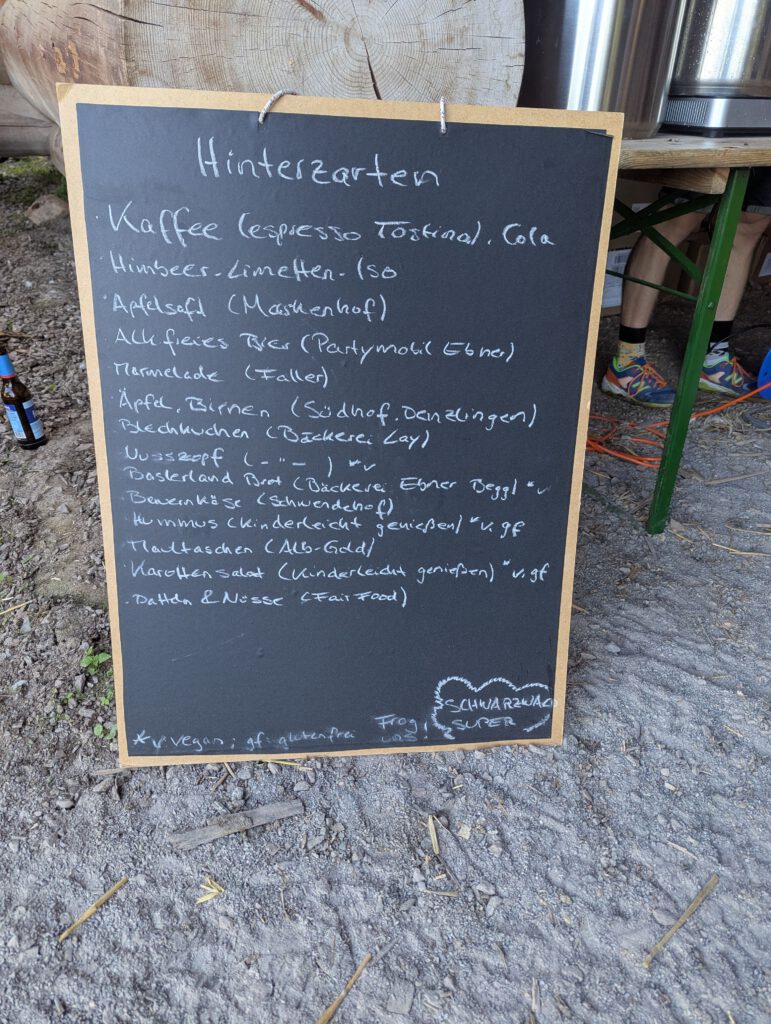 Hinterzarten
Kaffee (espresso Tostino), Cola
Himbeer-Limetten-Iso
Apfelsaft (Markenhof)
Alkfreies Bier (Partymobil Ebner)
Marmelade (Faller)
Äpfel, Birnen (Südhof, Denzlingen)
Blechkuchen (Bäckerei Lay)
Nusszopf (-"-) *v
Baslerland Brot (Bäckerei Ebner Begg) *v
Bauernkäse (Schwendehof)
Hummus (Kinderleicht genießen) *v, gf
Maultaschen (Alb-Gold)
Karottensalat (Kinderleicht genießen) *v, gf
Datteln & Nüsse (FairFood)
*v vegan; gf: glutenfrei
Frag uns!
SCHWARZWALD
SUPER